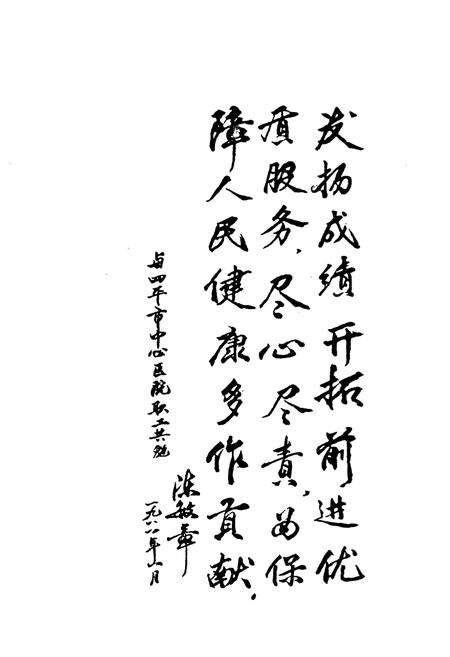 发扬成绩开拓前进优
质服务,尽心尽责,为保
障人民健康多作贡献.
与四平市中心医院职工共勉
陈敏章
一九八八年八月